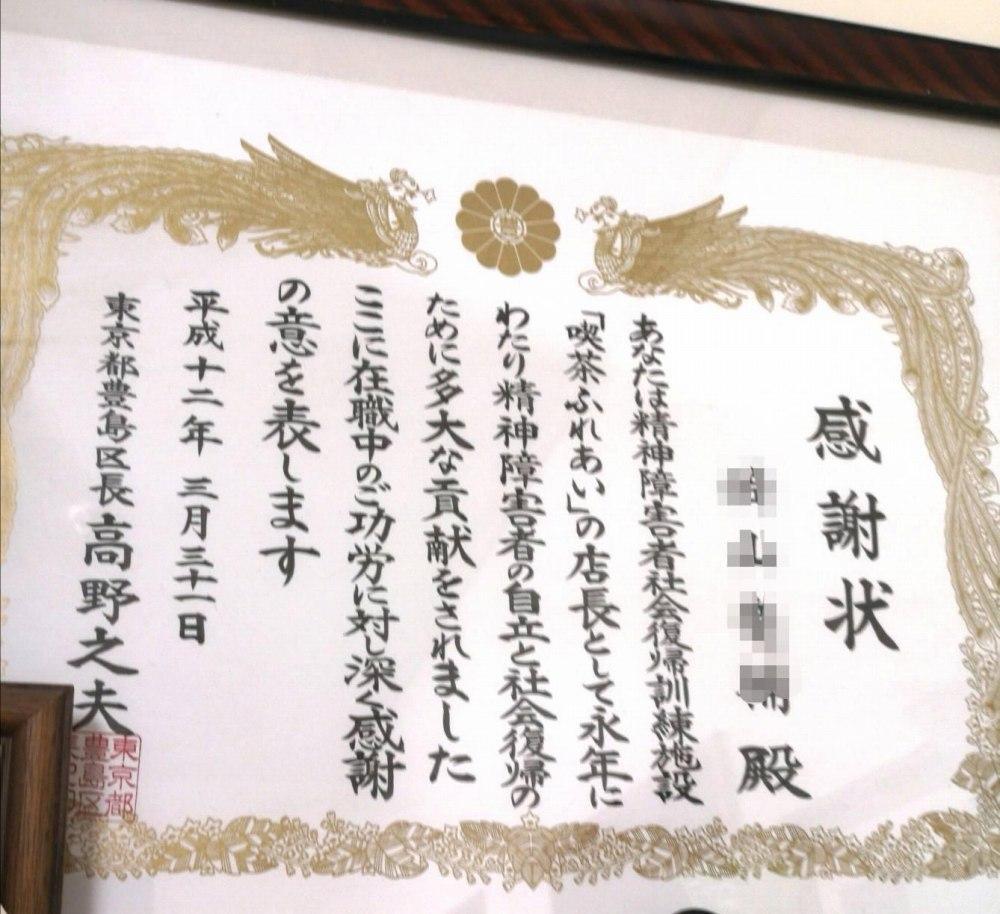 感謝状
殿
あなたは精神障害者社会復帰訓練施設
「喫茶ふれあい」の店長として永年に
わたり精神障害者の自立と社会復帰の
ために多大な貢献をされました
ここに在職中のご功労に対し深く感謝
の意を表します
平成十二年 三月三十一日
東京都豊島区長 高野之夫
東京都
豊島区